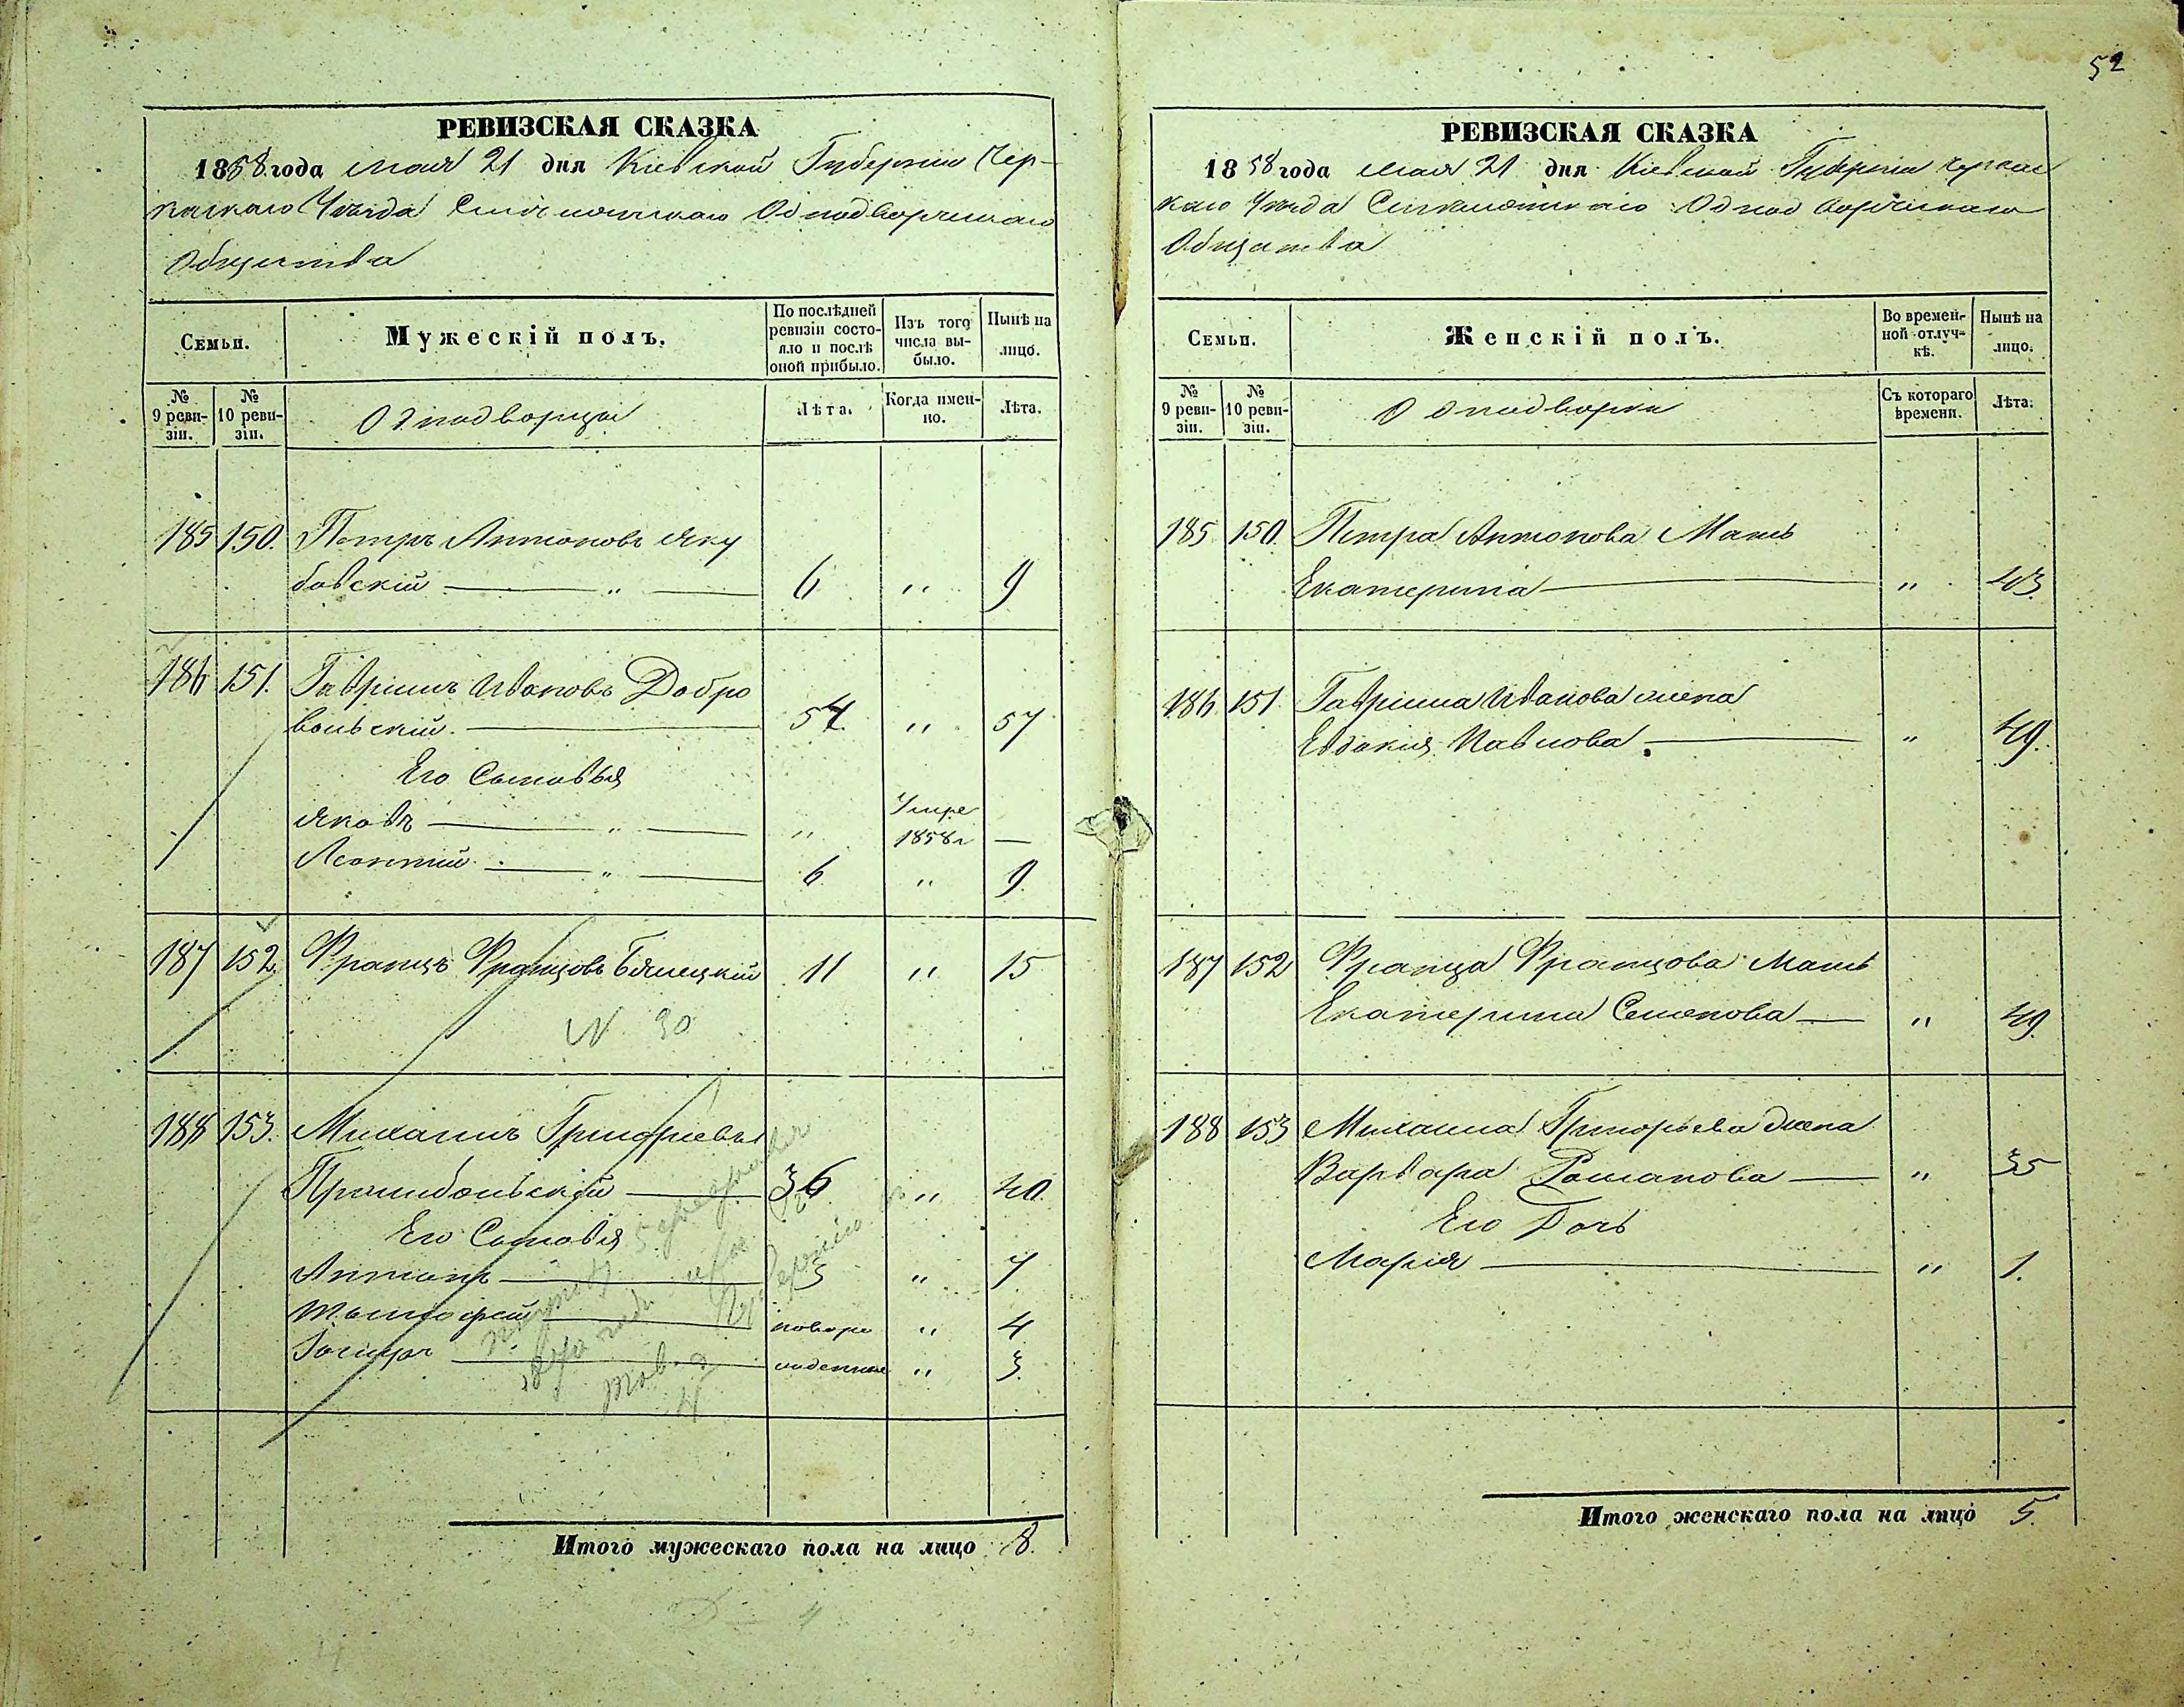 РЕВИЗСКАЯ СКАЗКА
1858 года мая 21 дня Кіевской Губерніи Чер-
каскаго Уѣзда Однодворческаго
Общества
Семьи.
Мужескій полъ.
По послѣдней
ревизіи состо-
яло и послѣ
оной прибыло.
Изъ того
числа вы-
было.
Нынѣ на
лицо.
№
9 реви-
зіи.
№
10 реви-
зіи.
Однодворцы
Лѣта.
Когда имен-
но.
Лѣта.
185 150. Петръ Антоновъ Яку
бовскій — " — 6 " 9
186 151. Гавріилъ Ивановъ Добро
вольскій. — 54. " 57
Его Сыновья
Умре
Яковъ — " — " 1858 г —
Леонтий — " — 6. " 9.
187 152. Францъ Францовъ 11 " 15
N 30
188 153. Михаилъ Григорієвъ
— 36 " 40.
Его Сыновья
Антонъ — 3 " 7
— новоро " 4
— жденные " 3.
Итого мужескаго пола на лицо 8.
52
РЕВИЗСКАЯ СКАЗКА
1858 года мая 21 дня Кіевской Губерніи Черкас
каго Уѣзда Однодворческаго
Общества
Семьи.
Женскій полъ.
Во времен-
ной отлуч-
кѣ.
Нынѣ на
лицо.
№
9 реви-
зіи.
№
10 реви-
зіи.
Однодворки
Съ котораго
времени.
Лѣта.
185 150. Петра Антонова Мать
Екатерина — " 43.
186 151 Гавріила Иванова жена
Евдокия Павлова. — " 49.
187 152 Франца Францова Мать
Екатерина Семенова — " 49.
188 153 Михаила Григорьева жена
Варвара Романова — " 35
Его Дочь
Марія — " 1.
Итого женскаго пола на лицо 5.